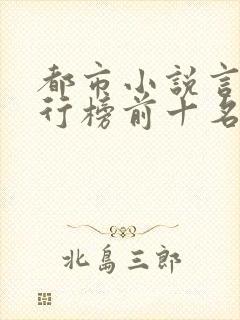 都市小説言
行榜前十名
北島三郎